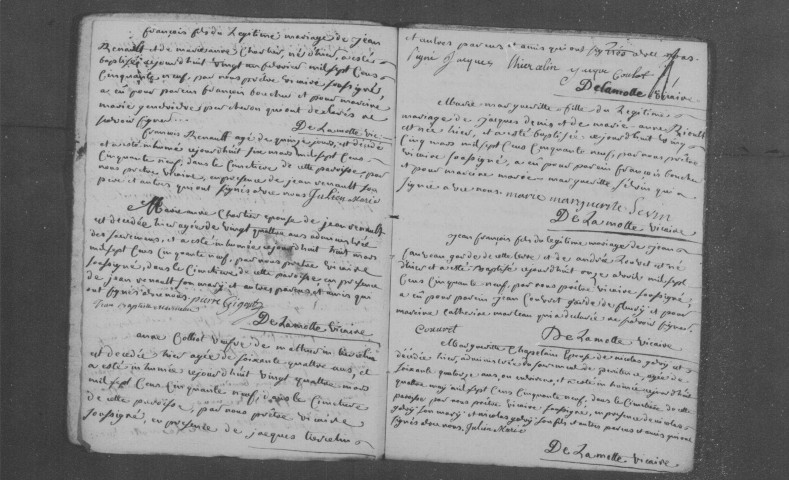 françois fils du Legitime mariage de jean
Renault et de marieanne Chartier, né d'hier, a esté
baptisé cejourdhuit vingt un fevrier mil sept Cens
Cinquante neuf, par nous prêtre vicaire soussigné,
a eû pour parein françois boucher et pour mareine
marie gendrierre qui ont declarés ne
sçavoir signer.
De Lamotte vic.
françois Renault agé de quinze jours, est décédé
et a esté inhumé cejourdhuit six mars mil sept Cens
Cinquante neuf, dans le Cimetiere de cette paroisse, par
nous prêtre vicaire, en presence de jean renault son
pere et autres qui ont signés avec nous Julien Marié
Marie anne Chartier epouse de jean renault
est decedée hier agée de vingt quattre ans administrée
des sacremens, et a esté inhumée cejourdhuit huit mars
mil sept Cens Cinquante neuf, par nous prêtre vicaire
soussigné, dans le Cimetiere de cette paroisse, en presence
de jean renault son mary et autres parens, et amis qui
ont signés avec nous. pierre Gignet
Jean Baptiste
De Lamotte vicaire
anne Collot veufve de mathurin
est decedée hier agée de soixante quattre ans, et
a esté inhumée cejourdhuit vingt quattre mars
mil sept Cens Cinquante neuf, dans le Cimetiere
de cette paroisse, par nous prêtre vicaire
soussigné, en presence de jacques
et autres parens et amis qui ont signés avec nous
signé Jacques
De Lamotte vicaire
Marie marguerittte fille du Legitime
mariage de jacques denis et de marie anne Renault
est née hier, et a esté baptisée cejourdhuit vingt
Cinq mars mil sept Cens Cinquante neuf, par nous prêtre
vicaire soussigné, a eû pour parein françois boucher
et pour mareine marie marguerite sevin qui a
signé avec nous. marie marguerite Sevin
De Lamotte vicaire
jean françois fils du legitime mariage de jean
garde de cette terre et de andrée né
d'hier et a esté Baptisé cejourdhuit onze avril mil sept
Cens Cinquante neuf, par nous prêtre vicaire soussigné,
a eû pour parein jean Couvret garde de fleury et pour
mareine Catherine marteau qui a declaré ne sçavoir signer.
Couvret
De Lamotte vicaire
Marguerite Chapelain epouse de nicolas godry est
décédée hier, administrée du sacrement de penitence, agée de
soixante ans, ou environ, et a esté inhumée cejourdhuit
quattre may mil sept Cens Cinquante neuf, dans le Cimetiere de cette
paroisse par nous prêtre vicaire soussigné, en presence de nicolas
godry son mary et nicolas godry son fils et autres parens et amis qui ont
signés avec nous. Julien Marié
De Lamotte vicaire